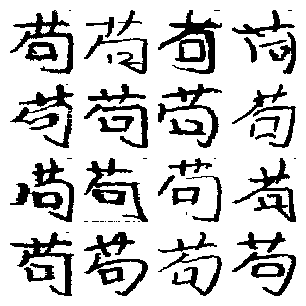 苟苟苟苟
苟苟苟苟
苟苟苟苟
苟苟苟苟